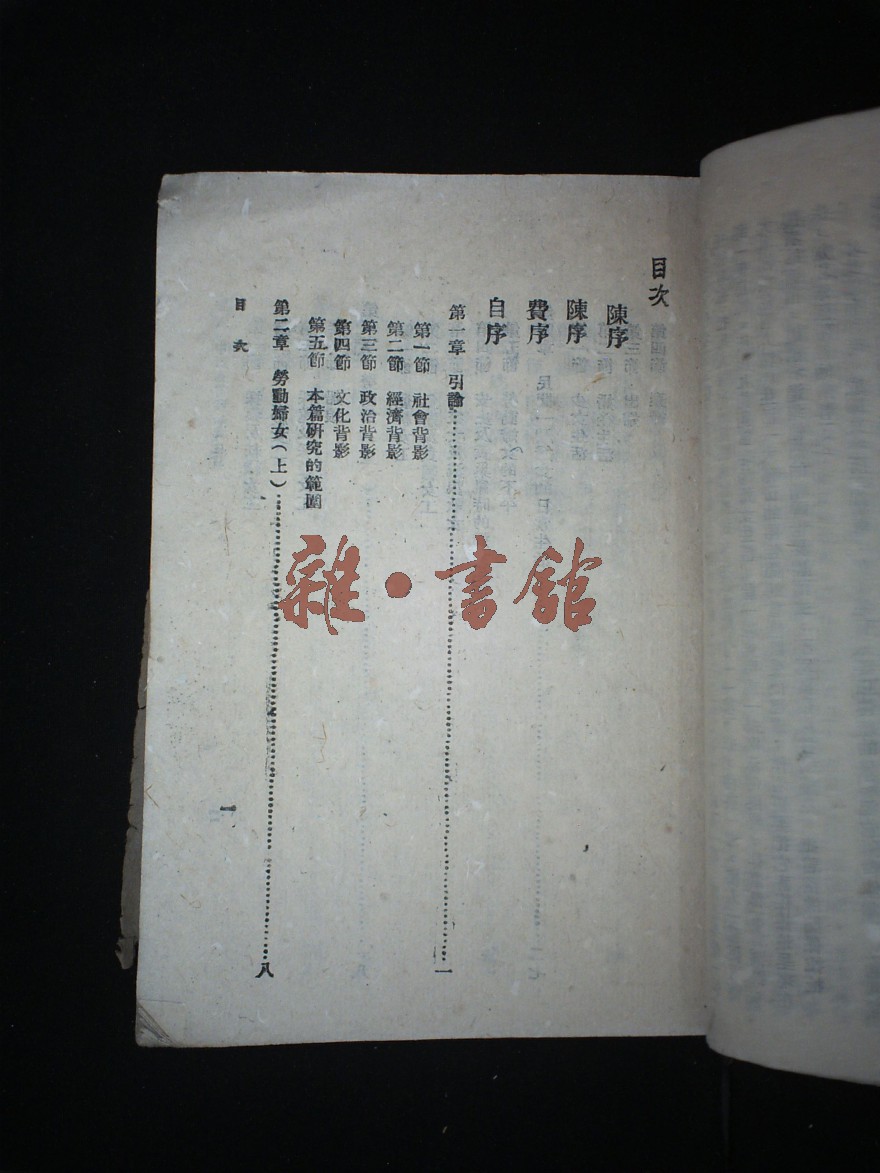 目次
陳序
陳序
費序
自序
第一章 引論……一
第一節 社會背影
第二節 經濟背影
第三節 政治背影
第四節 文化背影
第五節 本篇研究的範圍
第二章 勞動婦女(上)……八
目次
一
雜·書館